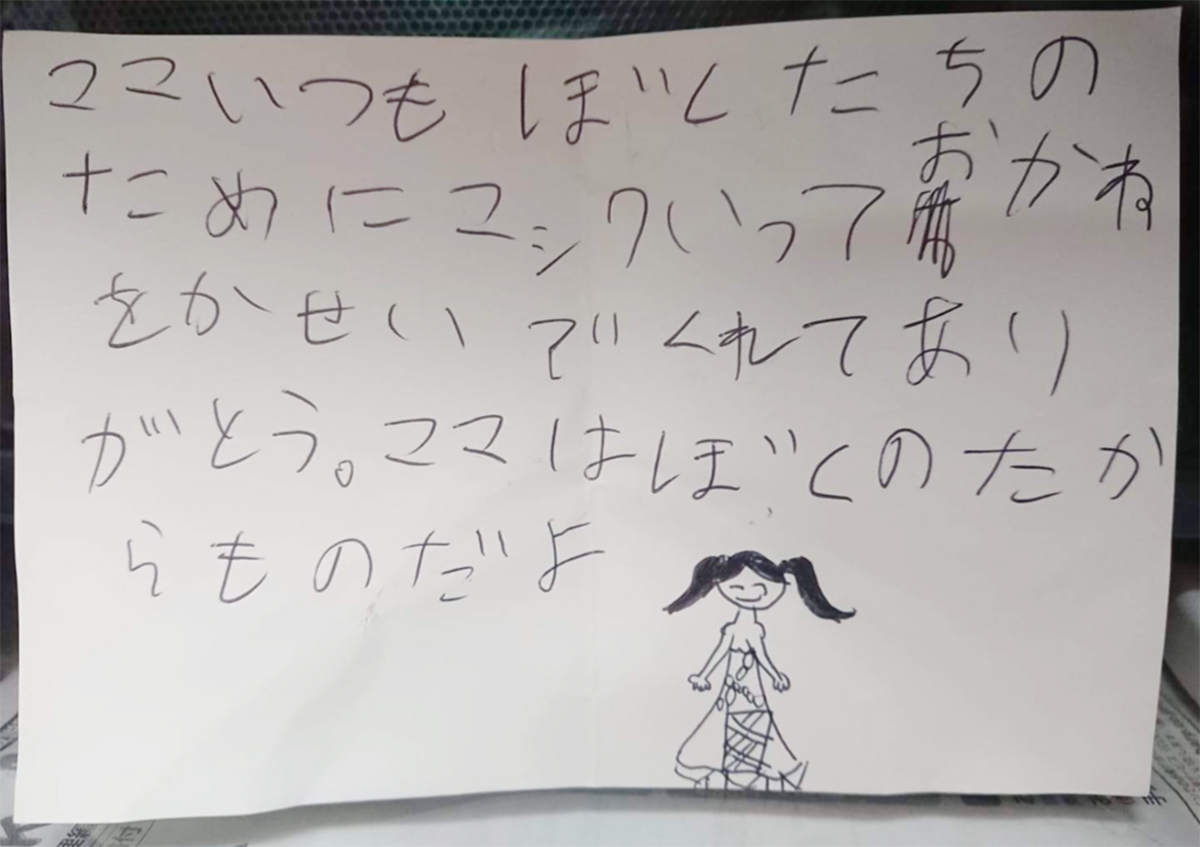 ママいつもぼくたちの
ためにマックいっておかね
をかせいでくれてあり
がとう。ママはぼくのたか
らものだよ